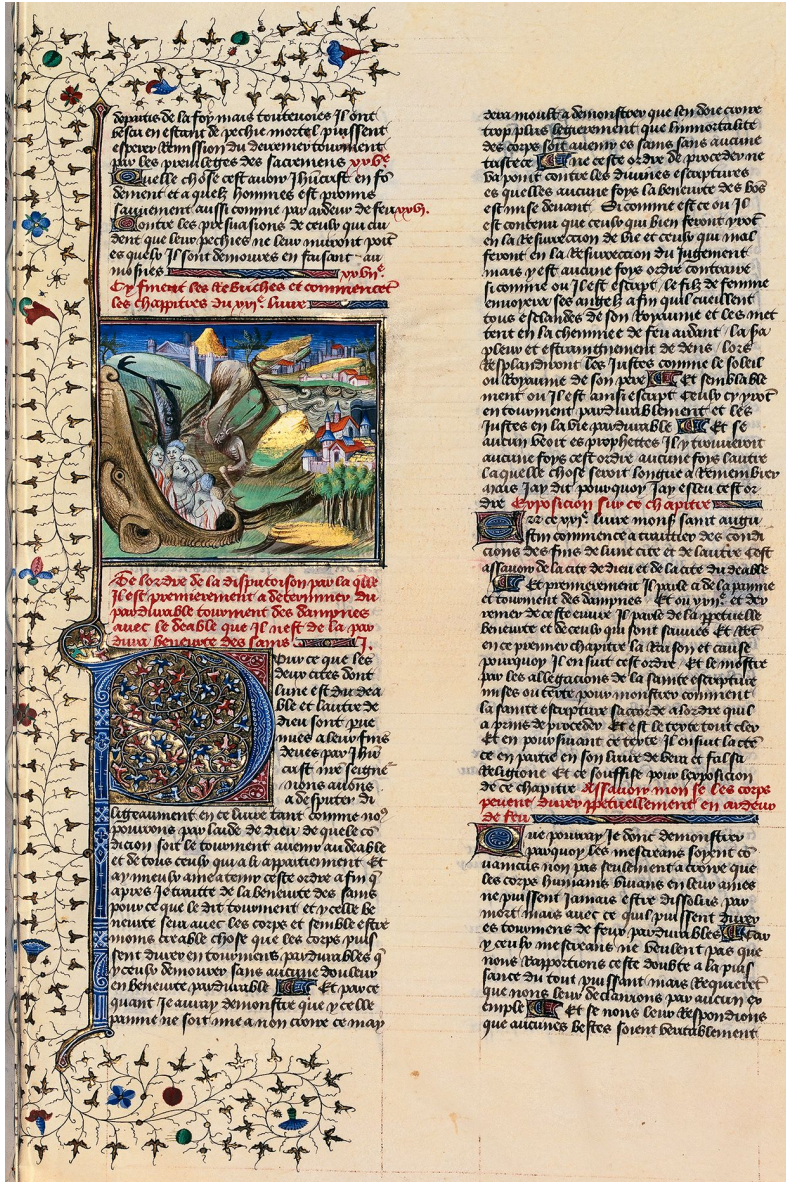 departis de la foy mais toutevoies Il ont
vescu en estant de pechie mortel puissent
esperer Remission du derreniere tourment
par les previleges des sacremens xxve
Quelle chose cest avoir Jhucrist en fo
dement et a quelz hommes est promis
sauvement aussi comme par ardeur de feu xxvi.
Contre les persuasions de ceulx qui cui
dent que leur pechies ne leur nuiront poit
es quelx Il sont demoures en faisant au
mosnes xxviie
Cy finent les Rebriches et commencet
les chappitres du xxie livre
De lordre de la disputoison par la qlle
Il est premierement a determiner du
pardurable tourment des dampnes
avec le deable que Il nest de la par
dura beneurte des sains I.
Pour ce que les
deux cites dont
lune est du dea
ble et lautre de
dieu sont pue
nues a leur fins
deues par Jhu
crist nre seigne
nous avons
a desputer di
ligeaument en ce livre tant comme nos
pourrons par laide de dieu de quele co
dicion soit le tourment avenir au deable
et de tous ceulx qui a li appartiennent Et
ay mieulx ame a tenir ceste ordre a fin q
apres Je traitte de la beneurte des sains
pour ce que le dit tourment et ycelle be
neurte sera avec les corps et semble estre
moins creable chose que les corps puis
sent durer en tourmens pardurables q
yceulx demourer sans aucune douleur
en beneurte pardurable Et par ce
quant Je auray demonstre que ycelle
painne ne soit mie a non croire ce may
dera moult a demonstrer que len doie croire
trop plus legierement que Immortalite
des corps soit avenir es sains sans aucune
tristece Et ne ceste ordre de proceder ne
va point contre les divines escriptures
es quelles aucune foys la beneurte des bos
est mise devant Si comme est ce ou Il
est contenu que ceulx qui bien feront yrot
en la Resurrection de vie et ceulx qui mal
feront en la Resurrection du Jugement
mais y est aucune foys ordre contraire
si comme ou Il est escript le filz de femme
envoyera ses angelz a fin quil cueillent
tous esclandes de son Royaume et les met
tent en la cheminee de feu ardant la sa
pleur et estraignement de dens lors
Resplandiront les Justes comme le soleil
ou Royaume de son pere Et semblable
ment ou Il est ainsi escript Ceulx cy yrot
en tourment pardurablement et les
Justes en la vie pardurable Et se
aucun veoit es prophettes Il y trouveroit
aucune foys cest ordre aucune foys lautre
laquelle chose seroit longue a Remembrer
mais Jay dit pourquoy Jay esleu cest or
dre Exposicion sur ce chapitre
En ce xxie livre monss saint augu
stin commence a traitier des condi
cions des fins de lune cite et de lautre Cest
assavoir de la cite de dieu et de la cite du deable
Et premierement Il parle ci de la painne
et tourment des dampnes Et ou xxiie et der
renier de ceste euvre Il parle de la ppetuelle
beneurte et de ceulx qui sont sauves Et Ret
en ce premier chapitre la Raison et cause
pourquoy Il ensuit cest ordre Et le monstre
par les allegacions de la sainte escripture
mises ou texte pour monstrer comment
la sainte escripture sacorde a lordre quil
a prins de proceder Et est le texte tout cler
Et en poursuivant ce texte Il ensuit lactē
ce en partie en son livre de vera et falsa
Religione Et ce souffise pour lexposicion
de ce chapitre Assavoir mon se les corps
peuent durer ppetuellement en ardeur
de feu
Que pourray Je donc demonstrer
par quoy les mescreans soyent co
vaincus non pas seulement a croire que
les corps humains vivans en leur ames
ne puissent Jamais estre dissolus par
mort mais avec ce quil puissent durer
es tourmens de feux pardurables Car
yceulx mescreans ne veulent pas que
nous Rapportions ceste doubte a la puis
sance du tout puissant mais Requierent
que nous leur declairions par aucun ex
emple Et se nous leur Respondions
que aucunes bestes soient veritablement